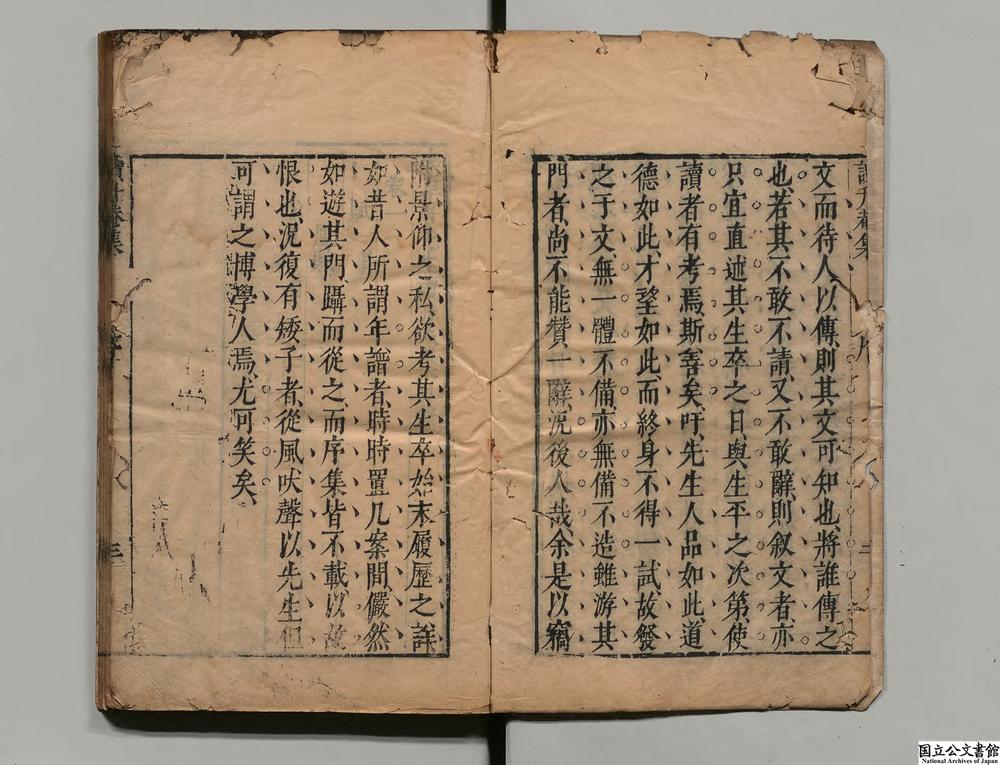 文而待人以傳、則其文可知也、將誰傳之
也、若其不敢不請、又不敢辭、則叙文者亦
只宜直述其生卒之日、與生平之次第、使
讀者有考焉、斯善矣、吁、先生人品如此、道
德如此、才望如此、而終身不得一試、故發
之于文、無一體不備、亦無備不造、雖游其
門者、尚不能贊一辭、況後人哉、余是以竊
附景仰之私、欲考其生卒始末、履歷之詳
如昔人所謂年譜者、時時置几案間、儼然
如遊其門、躡而從之、而序集皆不載、以故
恨也、況復有矮子者、從風吠聲、以先生但
可謂之博學人焉、尤可笑矣、
讀升菴集
序
三
国立公文書館
National Archives of Japan